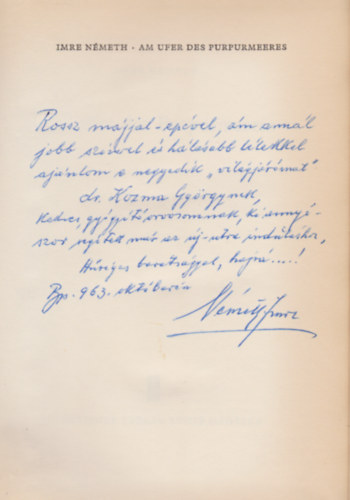 IMRE NÉMETH • AM UFER DES PURPURMEERES
Rossz májjal-epével, ám annál
jobb szívvel és hálásabb lélekkel
ajánlom a negyedik „világjárásmat"
dr. Kozma Györgynek,
kedves gyógyító orvosomnak, ki annyi-
szor segített már az új-utra indulásba,
Hűséges barátsággal, hajrá...!
Bp. 963. októberén
Németh Imre